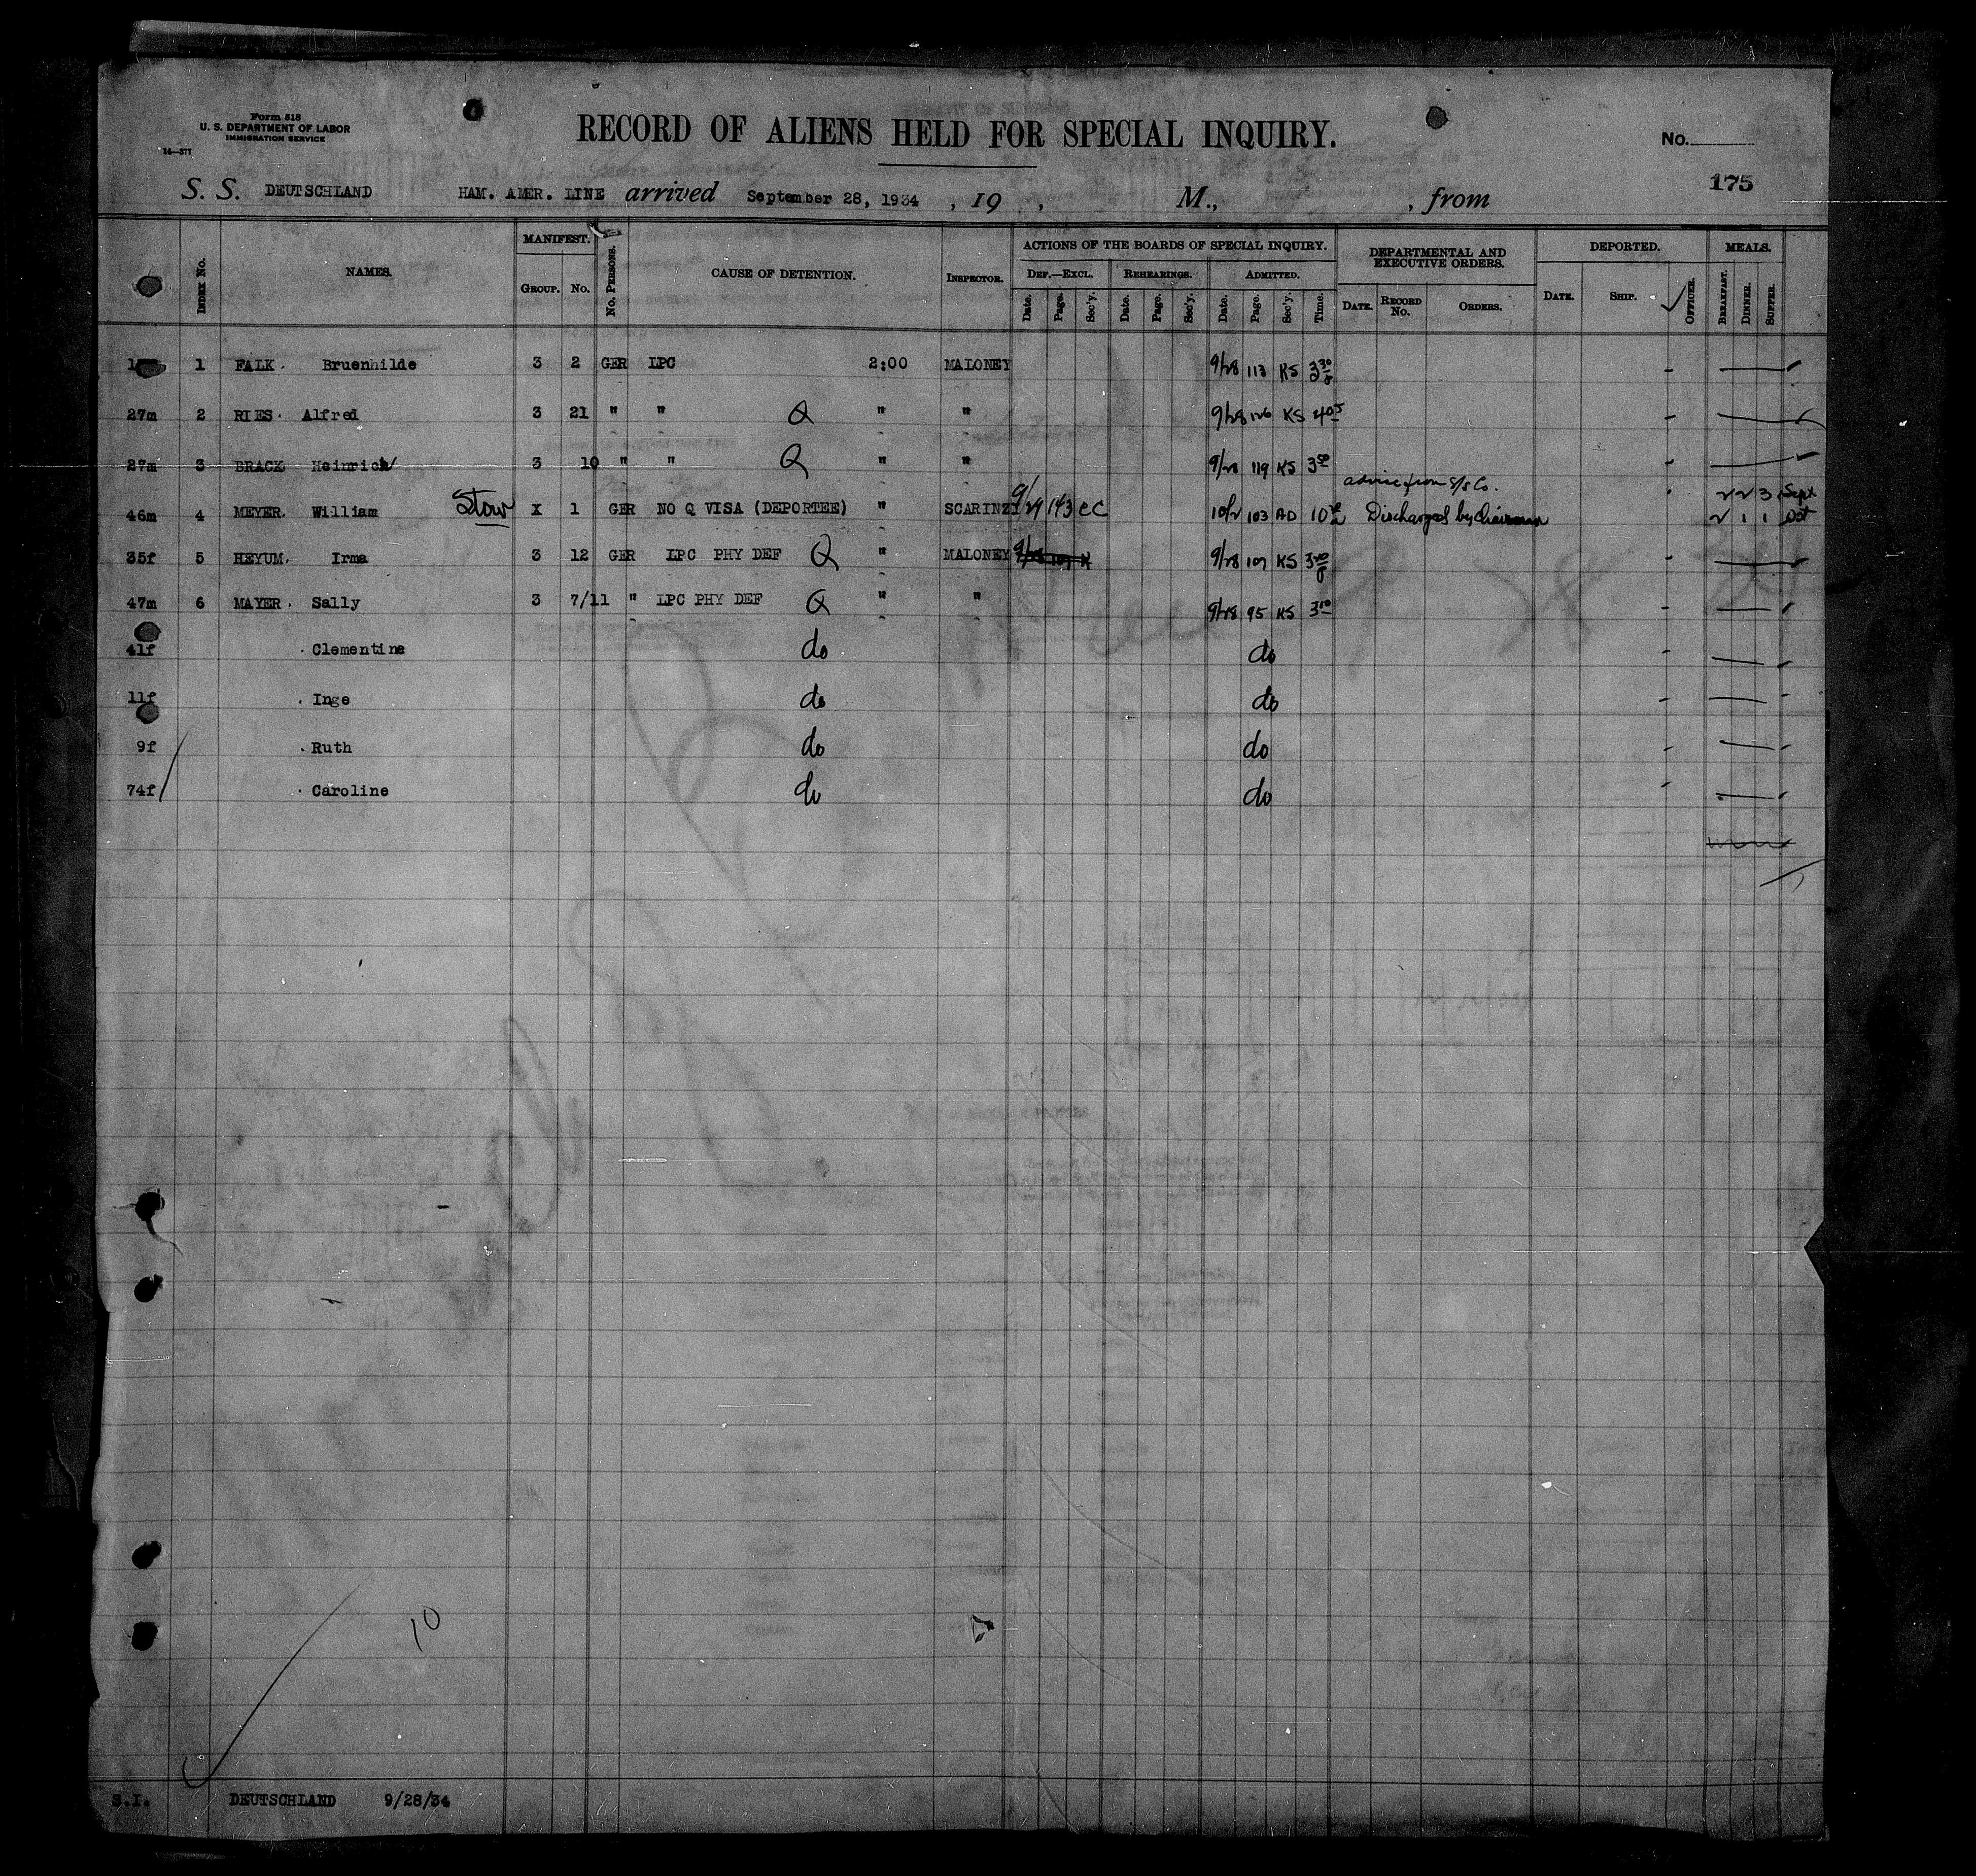 Form 518
U. S. DEPARTMENT OF LABOR
IMMIGRATION SERVICE
14—377
RECORD OF ALIENS HELD FOR SPECIAL INQUIRY.
No.
175
S. S. DEUTSCHLAND HAM. AMER. LINE arrived September 28, 1934 , 19 , M., , from
INDEX No. NAMES. MANIFEST. GROUP. No. No. PERSONS. CAUSE OF DETENTION. INSPECTOR. ACTIONS OF THE BOARDS OF SPECIAL INQUIRY. DEF.—EXCL. Date. Page. Sec'y. REHEARINGS. Date. Page. Sec'y. ADMITTED. Date. Page. Sec'y. Time. DEPARTMENTAL AND EXECUTIVE ORDERS. DATE. RECORD No. ORDERS. DEPORTED. DATE. SHIP. OFFICER. MEALS. BREAKFAST. DINNER. SUPPER.
1 FALK. Bruenhilde 3 2 GER LPC 2:00 MALONEY 9/28 113 KS 3 30
27m 2 RIES. Alfred 3 21 " " Q " " 9/28 126 KS 4 05
27m 3 BRACK Heinrich 3 10 " " Q " " 9/28 119 KS 3 50
advice from S/S Co.
46m 4 MEYER. William Stow X 1 GER NO Q VISA (DEPORTEE) " SCARINZI 9/29 143 EC 10/2 103 AD Discharged by Chairman 3 Sept
1 1 Oct
35f 5 HEYUM. Irma 3 12 GER LPC PHY DEF Q " MALONEY 9/28 107 K 9/28 107 KS
47m 6 MAYER. Sally 3 7/11 " LPC PHY DEF Q " " 9/28 95 KS 3 10
41f Clementine do do
11f Inge do do
9f Ruth do do
74f Caroline do do
10
S.I. DEUTSCHLAND 9/28/34